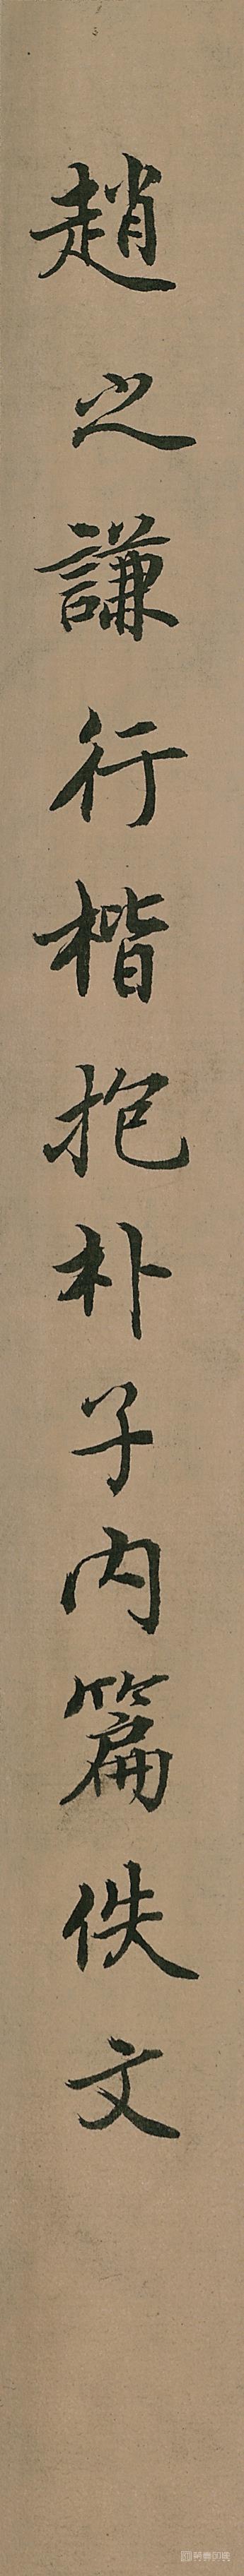 趙之謙行楷抱朴子内篇佚文